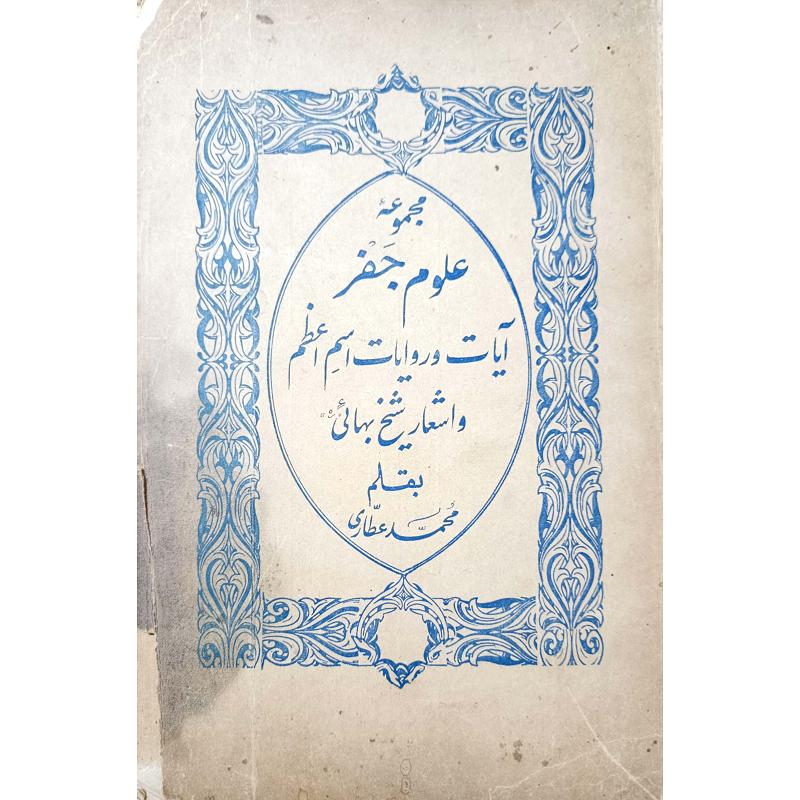 مجموعهٔ
علوم جَفْر
آیات و روایات اسمِ اعظم
و اشعار شیخ بهائی
بقلم
محمّد عطّاری